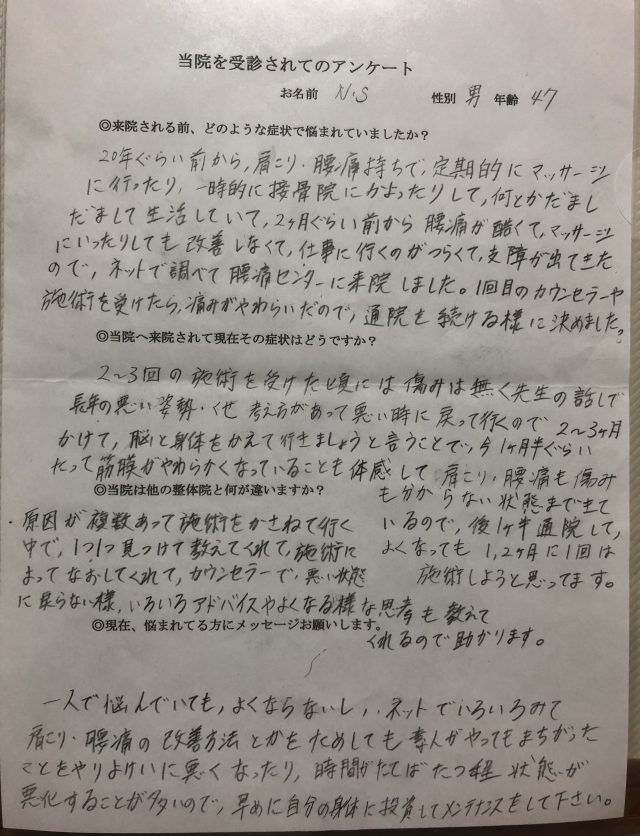 当院を受診されてのアンケート
お名前 N.S 性別 男 年齢 47
◎来院される前、どのような症状で悩まれていましたか？
20年ぐらい前から,肩こり・腰痛持ちで,定期的にマッサージ
に行ったり,一時的に接骨院にかよったりして,何とかだまし
だまして生活していて,2ヶ月ぐらい前から腰痛が酷くて,マッサージ
にいったりしても改善しなくて,仕事に行くのがつらくて,支障が出てきた
ので,ネットで調べて腰痛センターに来院しました。1回目のカウンセラーや
施術を受けたら,痛みがやわらいだので,通院を続ける様に決めました。
◎当院へ来院されて現在その症状はどうですか？
2〜3回の施術を受けた頃には傷みは無く先生の話しで
長年の悪い姿勢・くせ 考え方があって悪い時に戻って行くので2〜3ヶ月
かけて,脳と身体をかえて行きましょうと言うことで,今1ヶ月半ぐらい
たって筋膜がやわらかくなっていることも体感して肩こり,腰痛も傷み
も分からない状態まできて
いるので,後1ヶ半通院して,
よくなっても1,2ヶ月に1回は
施術しようと思ってます。
◎当院は他の整体院と何が違いますか？
・原因が複数あって施術をかさねて行く
中で,1つ1つ見つけて教えてくれて,施術に
よってなおしてくれて,カウンセラーで,悪い状態
に戻らない様,いろいろアドバイスやよくなる様な思考も教えて
くれるので助かります。
◎現在、悩まれてる方にメッセージお願いします。
一人で悩んでいても,よくならないし,,ネットでいろいろみて
肩こり・腰痛の改善方法とかをためしても素人がやってもまちがった
ことをやりよけいに悪くなったり,時間がたてばたつ程 状態が
悪化することが多いので,早めに自分の身体に投資してメンテナンスをして下さい。